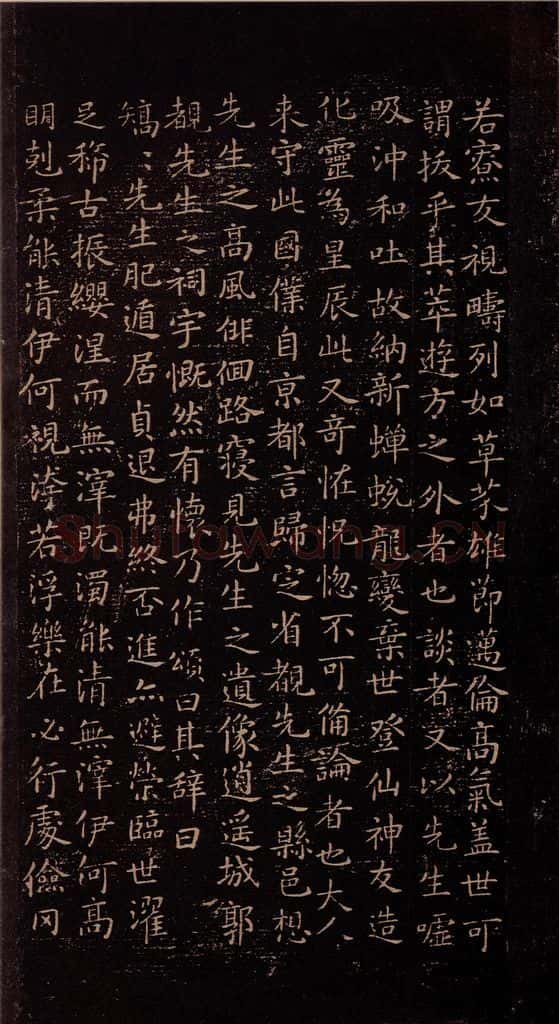 若寮友視疇列如草芥雄節邁倫高氣盖世可
謂拔乎其萃遊方之外者也談者又以先生噓
吸沖和吐故納新蟬蛻龍變棄世登仙神友造
化靈為星辰此又奇怪怳惚不可備論者也大人
来守此國僕自京都言歸定省覩先生之縣邑想
先生之高風俳佪路寑見先生之遺像逍遥城郭
覩先生之祠宇慨然有懷乃作頌曰其辞曰
矯〻先生肥遁居貞退弗終否進亦避榮臨世濯
足稀古振纓涅而無滓既濁能清無滓伊何高
明剋柔能清伊何視洿若浮樂在必行處儉罔
Shufawang.CN